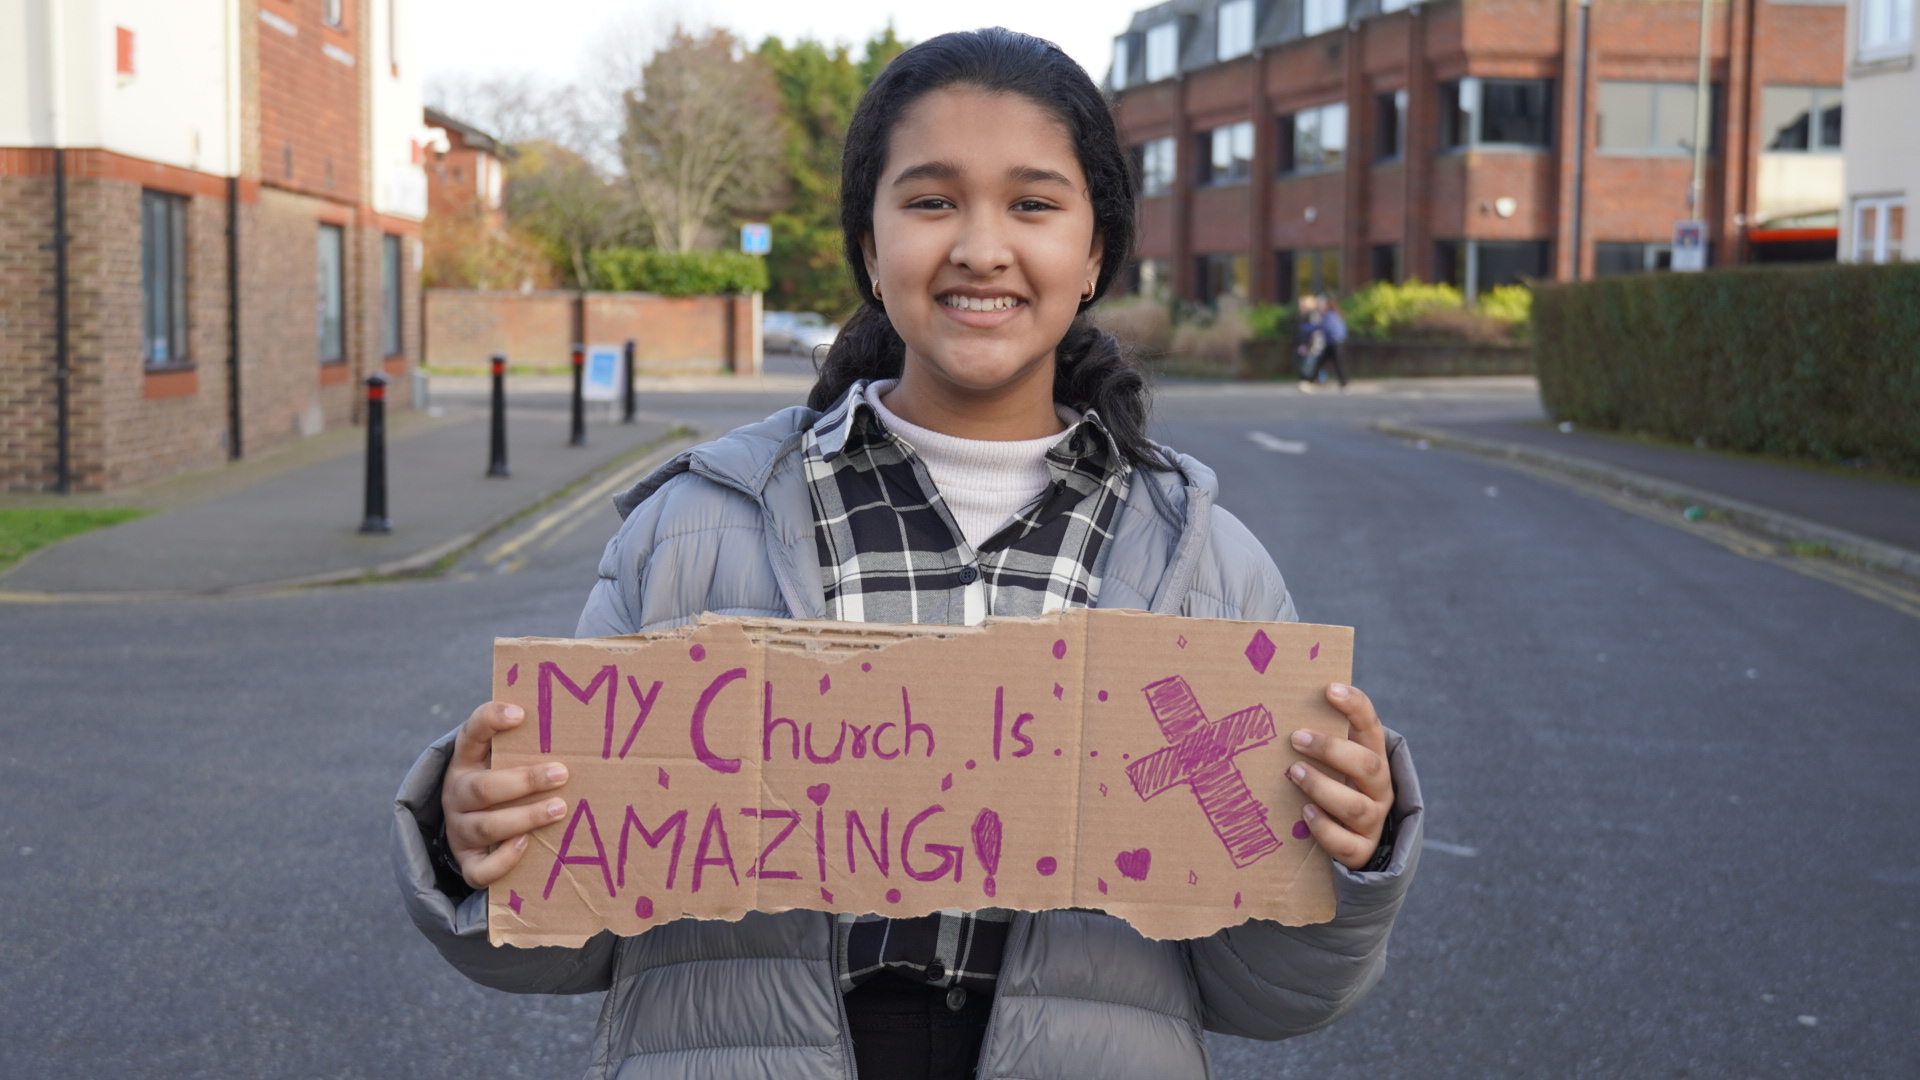 My Church Is...
AMAZING!